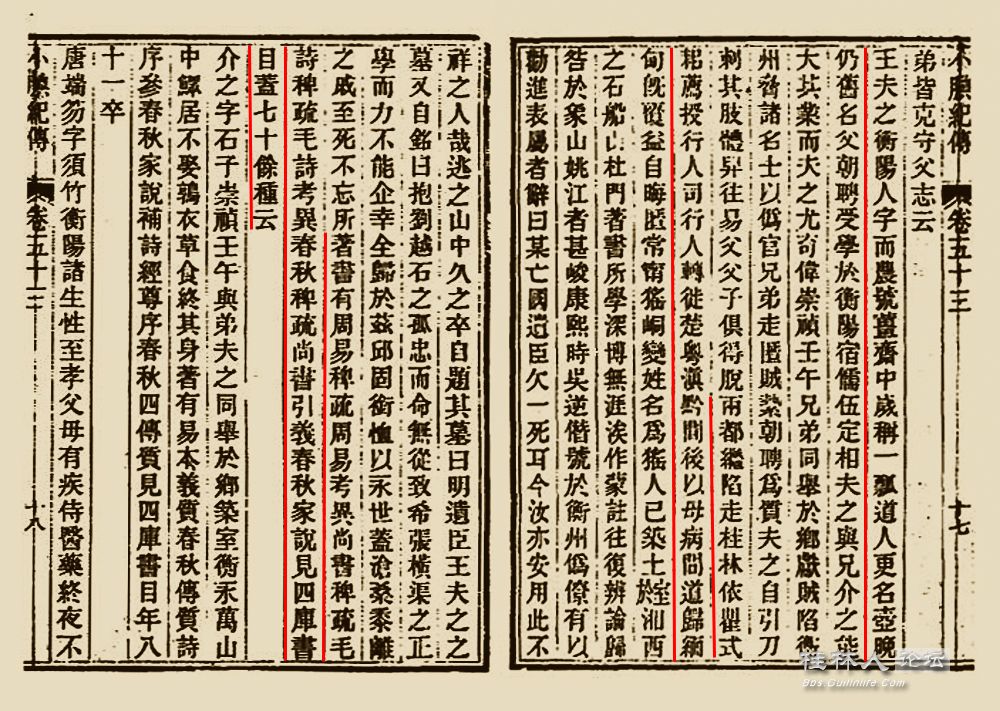 小腆紀傳 卷五十三 十七
弟皆克守父志云
王夫之衡陽人字而農號薑齋中歲稱一瓢道人更名壺晚
仍舊名父朝聘受學於衡陽宿儒伍定相夫之與兄介之能
大其業而夫之尤奇偉崇禎壬午兄弟同舉於鄉獻賊陷衡
州脅諸名士以僞官兄弟走匿賊縶朝聘爲質夫之自引刀
刺其肢體舁往易父父子俱得脫兩都繼陷走桂林依瞿式
耜薦授行人司行人轉徙楚粵滇黔間後以母病間道歸緬
甸旣蹙益自晦匿常竄猺峒變姓名爲猺人已築土室於湘西
之石船山杜門著書所學深博無涯涘作蒙註往復辨論歸
咎於象山姚江者甚峻康熙時吳逆僭號於衡州僞僚有以
勸進表屬者辭曰某亡國遺臣欠一死耳今汝亦安用此不
祥之人哉逃之山中久之卒自題其墓曰明遺臣王夫之之
墓又自銘曰抱劉越石之孤忠而命無從致希張橫渠之正
學而力不能企幸全歸於茲邱固銜恤以永世蓋滄桑黍離
之戚至死不忘所著書有周易稗疏周易考異尚書稗疏毛
詩稗疏毛詩考異春秋稗疏尚書引義春秋家說見四庫書
目蓋七十餘種云
介之字石子崇禎壬午與弟夫之同舉於鄉築室衡永萬山
中鰥居不娶鶉衣草食終其身著有易本義質春秋傳質詩
序參春秋家說補詩經尊序春秋四傳質見四庫書目年八
十一卒
唐端笏字須竹衡陽諸生性至孝父毋有疾侍醫藥終夜不
小腆紀傳 卷五十三 十八
桂林人论坛
Bbs.Guilinlife.Com